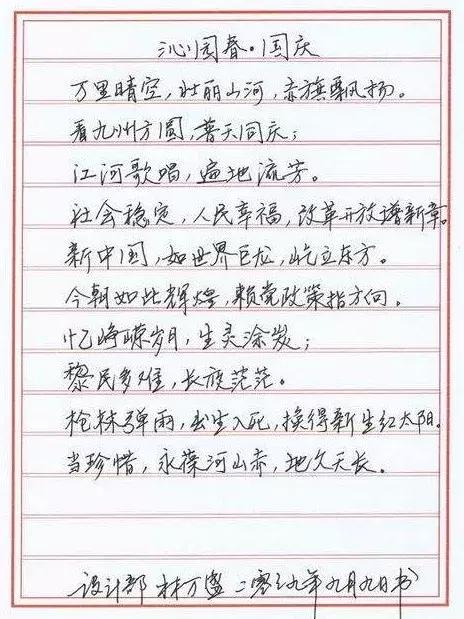 沁园春·国庆
万里晴空,壮丽山河,赤旗飘扬。
看九州方圆,普天同庆;
江河歌唱,遍地流芳。
社会稳定,人民幸福,改革开放谱新章。
新中国,如世界巨龙,屹立东方。
今朝如此辉煌,赖党政策指方向。
忆峥嵘岁月,生灵涂炭;
黎民多难,长夜茫茫。
枪林弹雨,出生入死,换得新生红太阳。
当珍惜,永葆河山赤,地久天长。
设计部 林万 年九月九日书